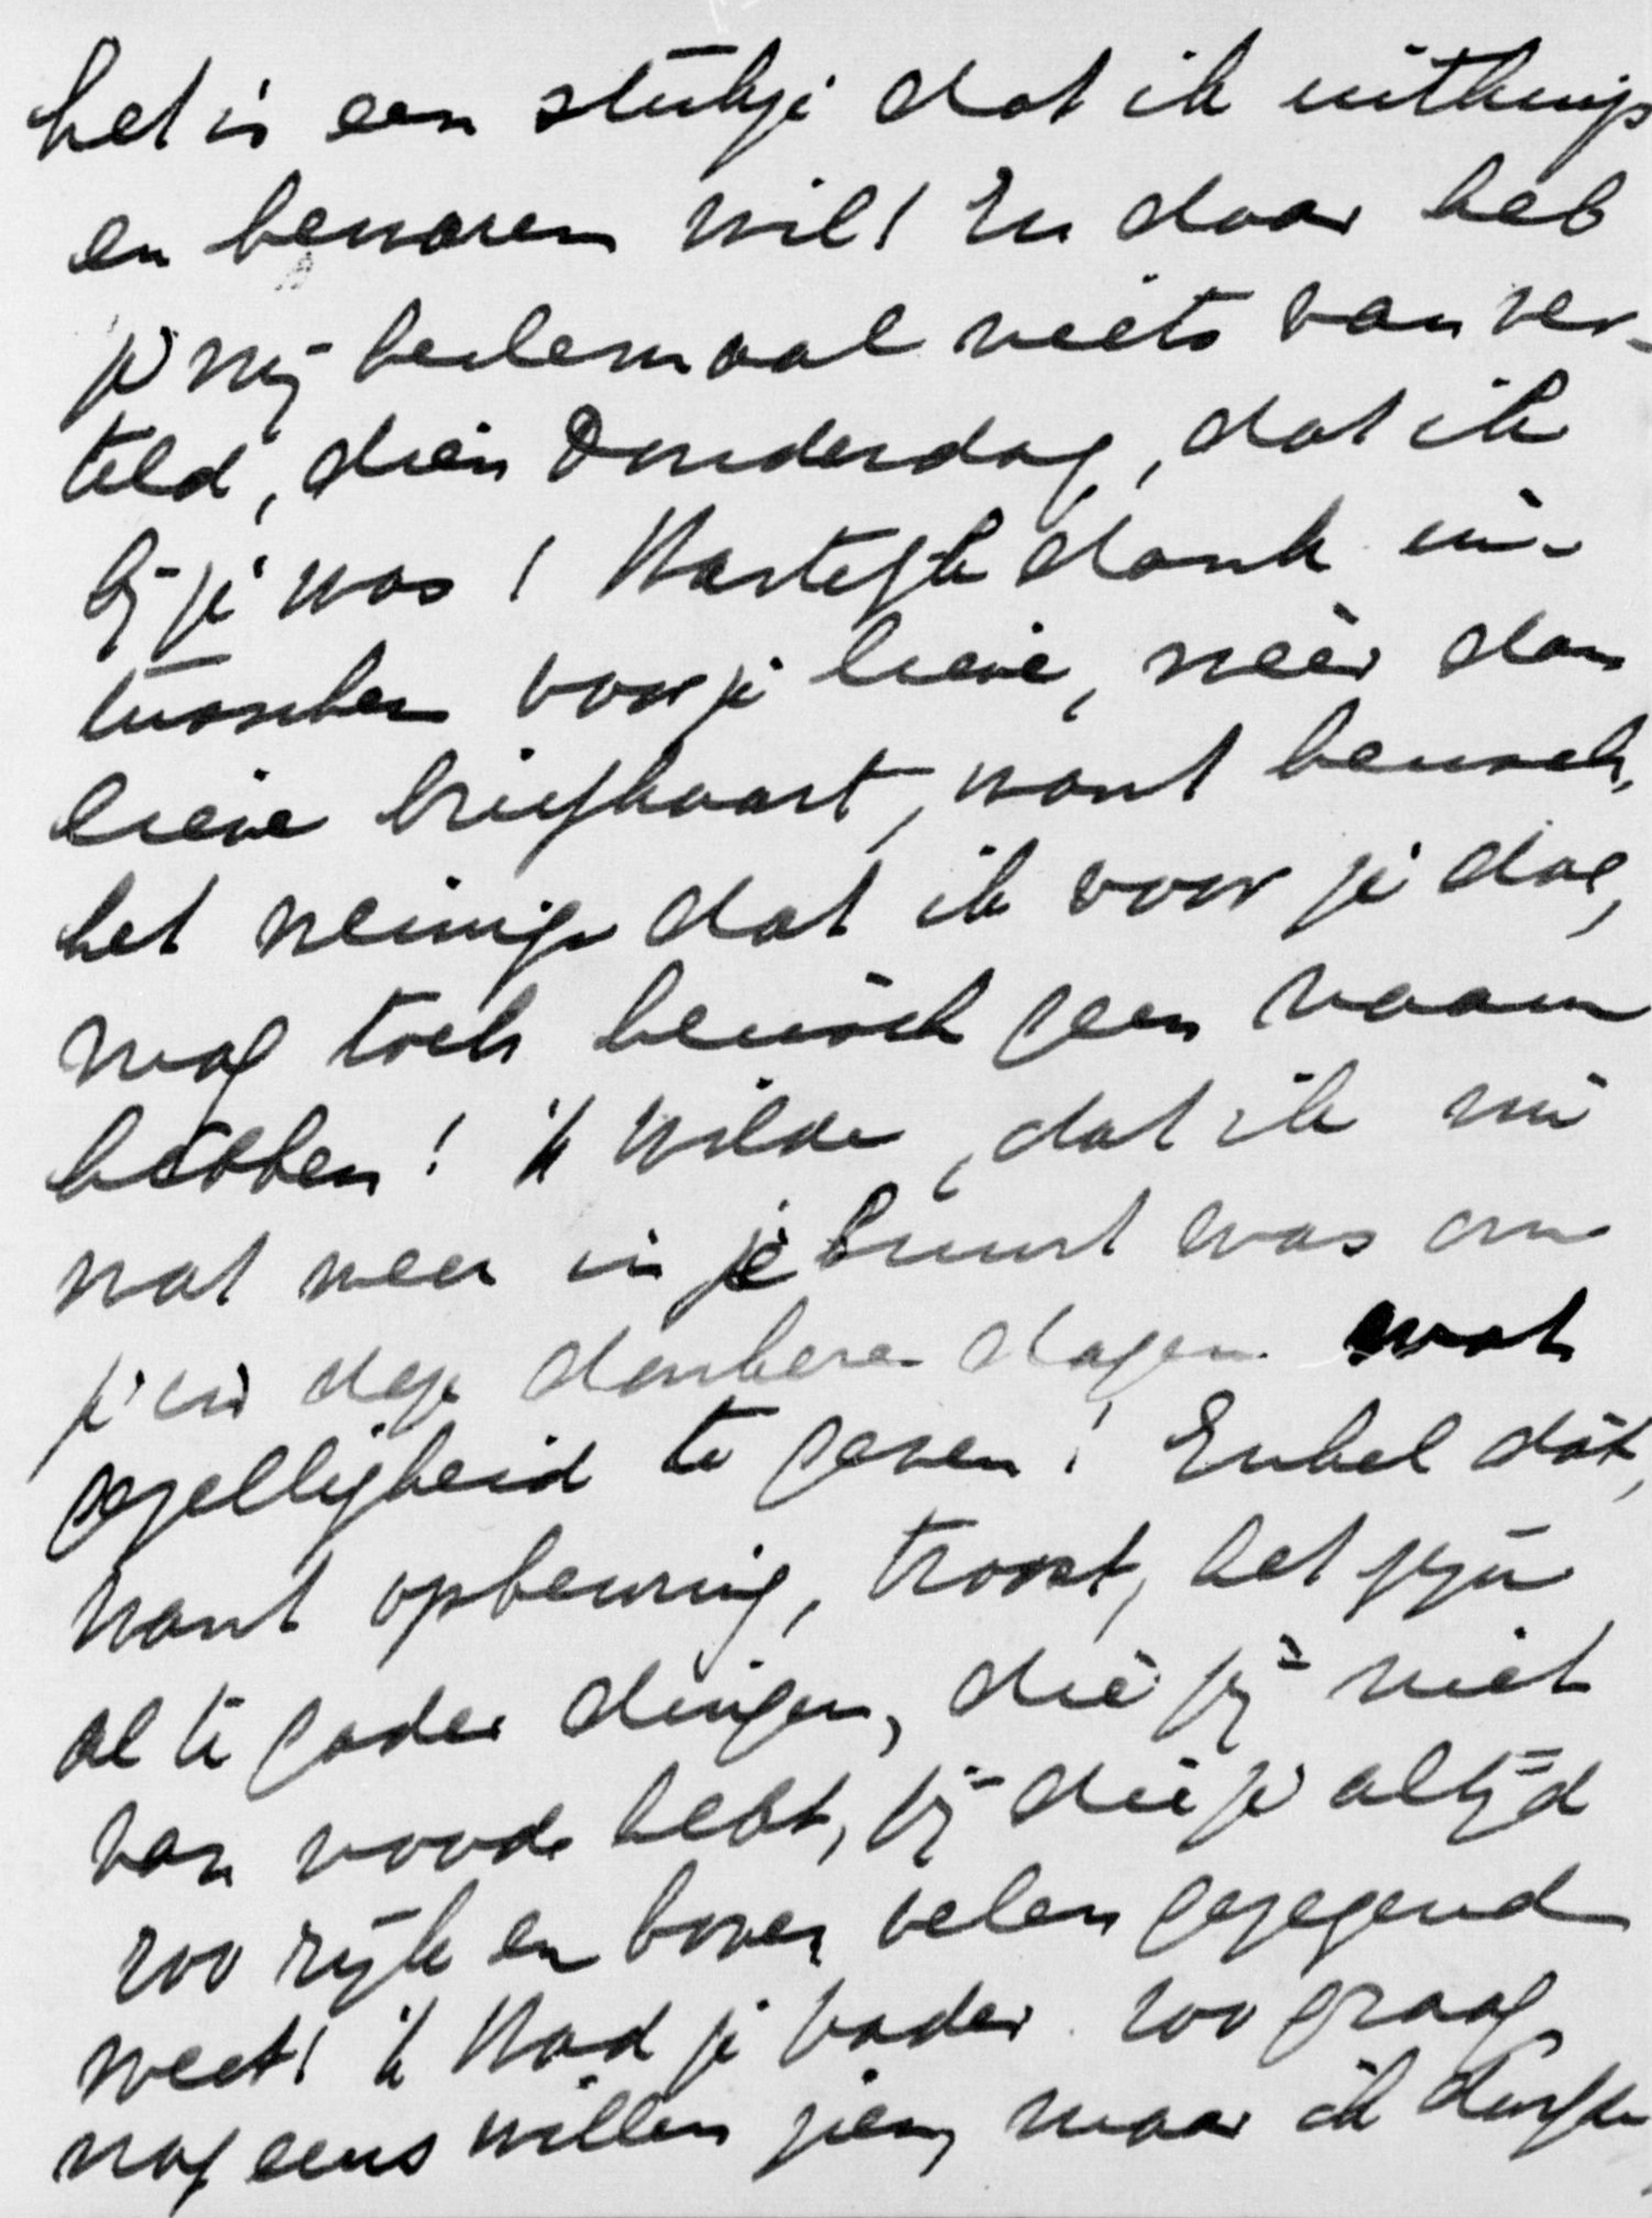 het is een stukje dat ik uitknip
en bewaren wil! En daar heb
je mij heelemaal niets van ver-
teld, dien Donderdag, dat ik
bij je was! Hartelijk dank in-
tusschen voor je lieve, méér dan
lieve briefkaart, want heusch,
het weinige dat ik voor je doe,
mag toch heusch geen naam
hebben! 'k Wilde, dat ik nu
wat meer in je buurt was om
je in deze donkere dagen wat
gezelligheid te geven! Enkel dát,
want opbeuring, troost, het zijn
al te gader dingen, die jij niet
van noode hebt, jij die je altijd
zoo rijk en boven velen gezegend
weet! 'k Had je vader zoo graag
nog eens willen zien, maar ik durfde